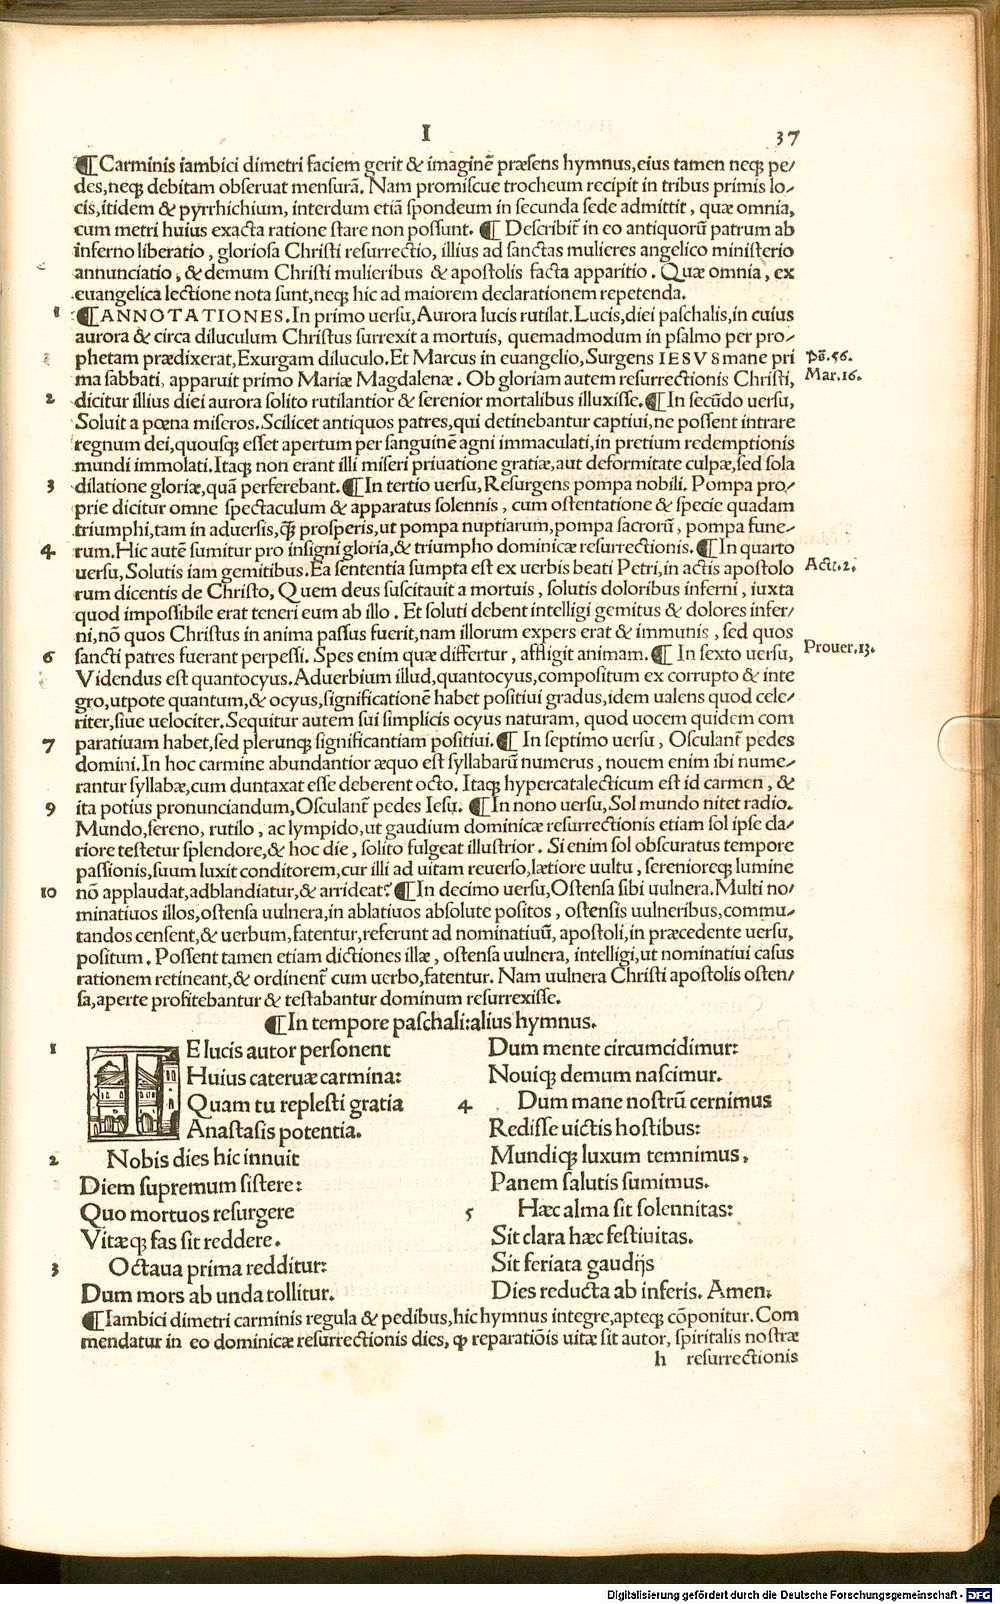 I
37
¶Carminis iambici dimetri faciem gerit & imaginē præsens hymnus,eius tamen neqꝫ pe/
des,neqꝫ debitam obseruat mensurā. Nam promiscue trocheum recipit in tribus primis lo/
cis,itidem & pyrrhichium, interdum etiā spondeum in secunda sede admittit, quæ omnia,
cum metri huius exacta ratione stare non possunt. ¶ Describit̃ in eo antiquorū patrum ab
inferno liberatio, gloriosa Christi resurrectio, illius ad sanctas mulieres angelico ministerio
annunciatio, & demum Christi mulieribus & apostolis facta apparitio. Quæ omnia, ex
euangelica lectione nota sunt,neqꝫ hic ad maiorem declarationem repetenda.
1 ¶ANNOTATIONES.In primo uersu,Aurora lucis rutilat.Lucis,diei paschalis,in cuius
aurora & circa diluculum Christus surrexit a mortuis, quemadmodum in psalmo per pro/
phetam prædixerat,Exurgam diluculo.Et Marcus in euangelio,Surgens IESVS mane pri Ps̄.56.
ma sabbati, apparuit primo Mariæ Magdalenæ. Ob gloriam autem resurrectionis Christi, Mar.16.
2 dicitur illius diei aurora solito rutilantior & serenior mortalibus illuxisse.¶In secūdo uersu,
Soluit a pœna miseros.Scilicet antiquos patres,qui detinebantur captiui,ne possent intrare
regnum dei,quousqꝫ esset apertum per sanguinē agni immaculati,in pretium redemptionis
mundi immolati.Itaqꝫ non erant illi miseri priuatione gratiæ,aut deformitate culpæ,sed sola
3 dilatione gloriæ,quā perferebant.¶In tertio uersu,Resurgens pompa nobili. Pompa pro/
prie dicitur omne spectaculum & apparatus solennis, cum ostentatione & specie quadam
triumphi,tam in aduersis,q̄ꝫ prosperis,ut pompa nuptiarum,pompa sacrorū, pompa fune/
4 rum.Hic autē sumitur pro insigni gloria,& triumpho dominicæ resurrectionis. ¶In quarto
uersu,Solutis iam gemitibus.Ea sententia sumpta est ex uerbis beati Petri,in actis apostolo Act.2.
rum dicentis de Christo, Quem deus suscitauit a mortuis, solutis doloribus inferni, iuxta
quod impossibile erat teneri eum ab illo. Et soluti debent intelligi gemitus & dolores infer/
ni,nō quos Christus in anima passus fuerit,nam illorum expers erat & immunis, sed quos
6 sancti patres fuerant perpessi. Spes enim quæ differtur, affligit animam. ¶ In sexto uersu, Prouer.13.
Videndus est quantocyus.Aduerbium illud,quantocyus,compositum ex corrupto & inte
gro,utpote quantum,& ocyus,significationē habet positiui gradus,idem ualens quod cele/
riter,siue uelociter.Sequitur autem sui simplicis ocyus naturam, quod uocem quidem com
7 paratiuam habet,sed plerunqꝫ significantiam positiui. ¶ In septimo uersu, Osculant̃ pedes
domini.In hoc carmine abundantior æquo est syllabarū numerus, nouem enim ibi nume/
rantur syllabæ,cum duntaxat esse deberent octo. Itaqꝫ hypercatalecticum est id carmen, &
9 ita potius pronunciandum,Osculant̃ pedes Iesu. ¶In nono uersu,Sol mundo nitet radio.
Mundo,sereno, rutilo, ac lympido,ut gaudium dominicæ resurrectionis etiam sol ipse cla/
riore testetur splendore,& hoc die, solito fulgeat illustrior. Si enim sol obscuratus tempore
passionis,suum luxit conditorem,cur illi ad uitam reuerso,lætiore uultu, serenioreqꝫ lumine
10 nō applaudat,adblandiatur,& arrideat? ¶In decimo uersu,Ostensa sibi uulnera.Multi no/
minatiuos illos,ostensa uulnera,in ablatiuos absolute positos, ostensis uulneribus,commu/
tandos censent,& uerbum,fatentur,referunt ad nominatiuū, apostoli,in præcedente uersu,
positum. Possent tamen etiam dictiones illæ, ostensa uulnera, intelligi,ut nominatiui casus
rationem retineant,& ordinent̃ cum uerbo,fatentur. Nam uulnera Christi apostolis osten/
sa,aperte profitebantur & testabantur dominum resurrexisse.
¶In tempore paschali:alius hymnus.
1 TE lucis autor personent
Huius cateruæ carmina:
Quam tu replesti gratia
Anastasis potentia.
2 Nobis dies hic innuit
Diem supremum sistere:
Quo mortuos resurgere
Vitæqꝫ fas sit reddere.
3 Octaua prima redditur:
Dum mors ab unda tollitur.
Dum mente circumcidimur:
Nouiqꝫ demum nascimur.
4 Dum mane nostrū cernimus
Redisse uictis hostibus:
Mundiqꝫ luxum temnimus,
Panem salutis sumimus.
5 Hæc alma sit solennitas:
Sit clara hæc festiuitas.
Sit feriata gaudijs
Dies reducta ab inferis. Amen.
¶Iambici dimetri carminis regula & pedibus,hic hymnus integre,apteqꝫ cōponitur.Com
mendatur in eo dominicæ resurrectionis dies, ꝙ reparatiōis uitæ sit autor, spiritalis nostræ
h resurrectionis
Digitalisierung gefördert durch die Deutsche Forschungsgemeinschaft - DFG